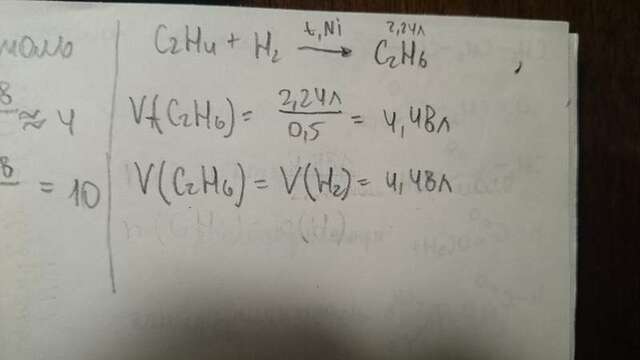 моль
8
≈ 4
8
= 10
2,24л
C2H4 + H2 t,Ni → C2H6 ,
Vт(C2H6) = 2,24л / 0,5 = 4,48л
V(C2H6) = V(H2) = 4,48л